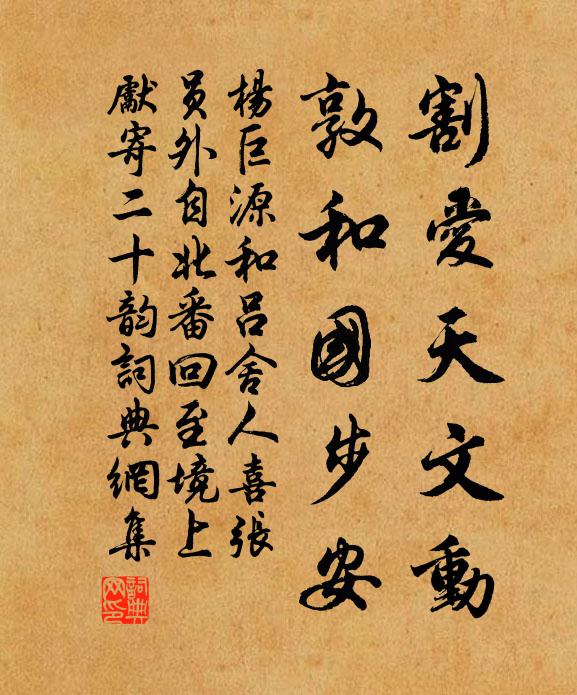 割愛天文動
敦和國步安
楊巨源和吕舍人喜張
員外自北番回至境上
獻寄二十韵詞典網集
詞典网印